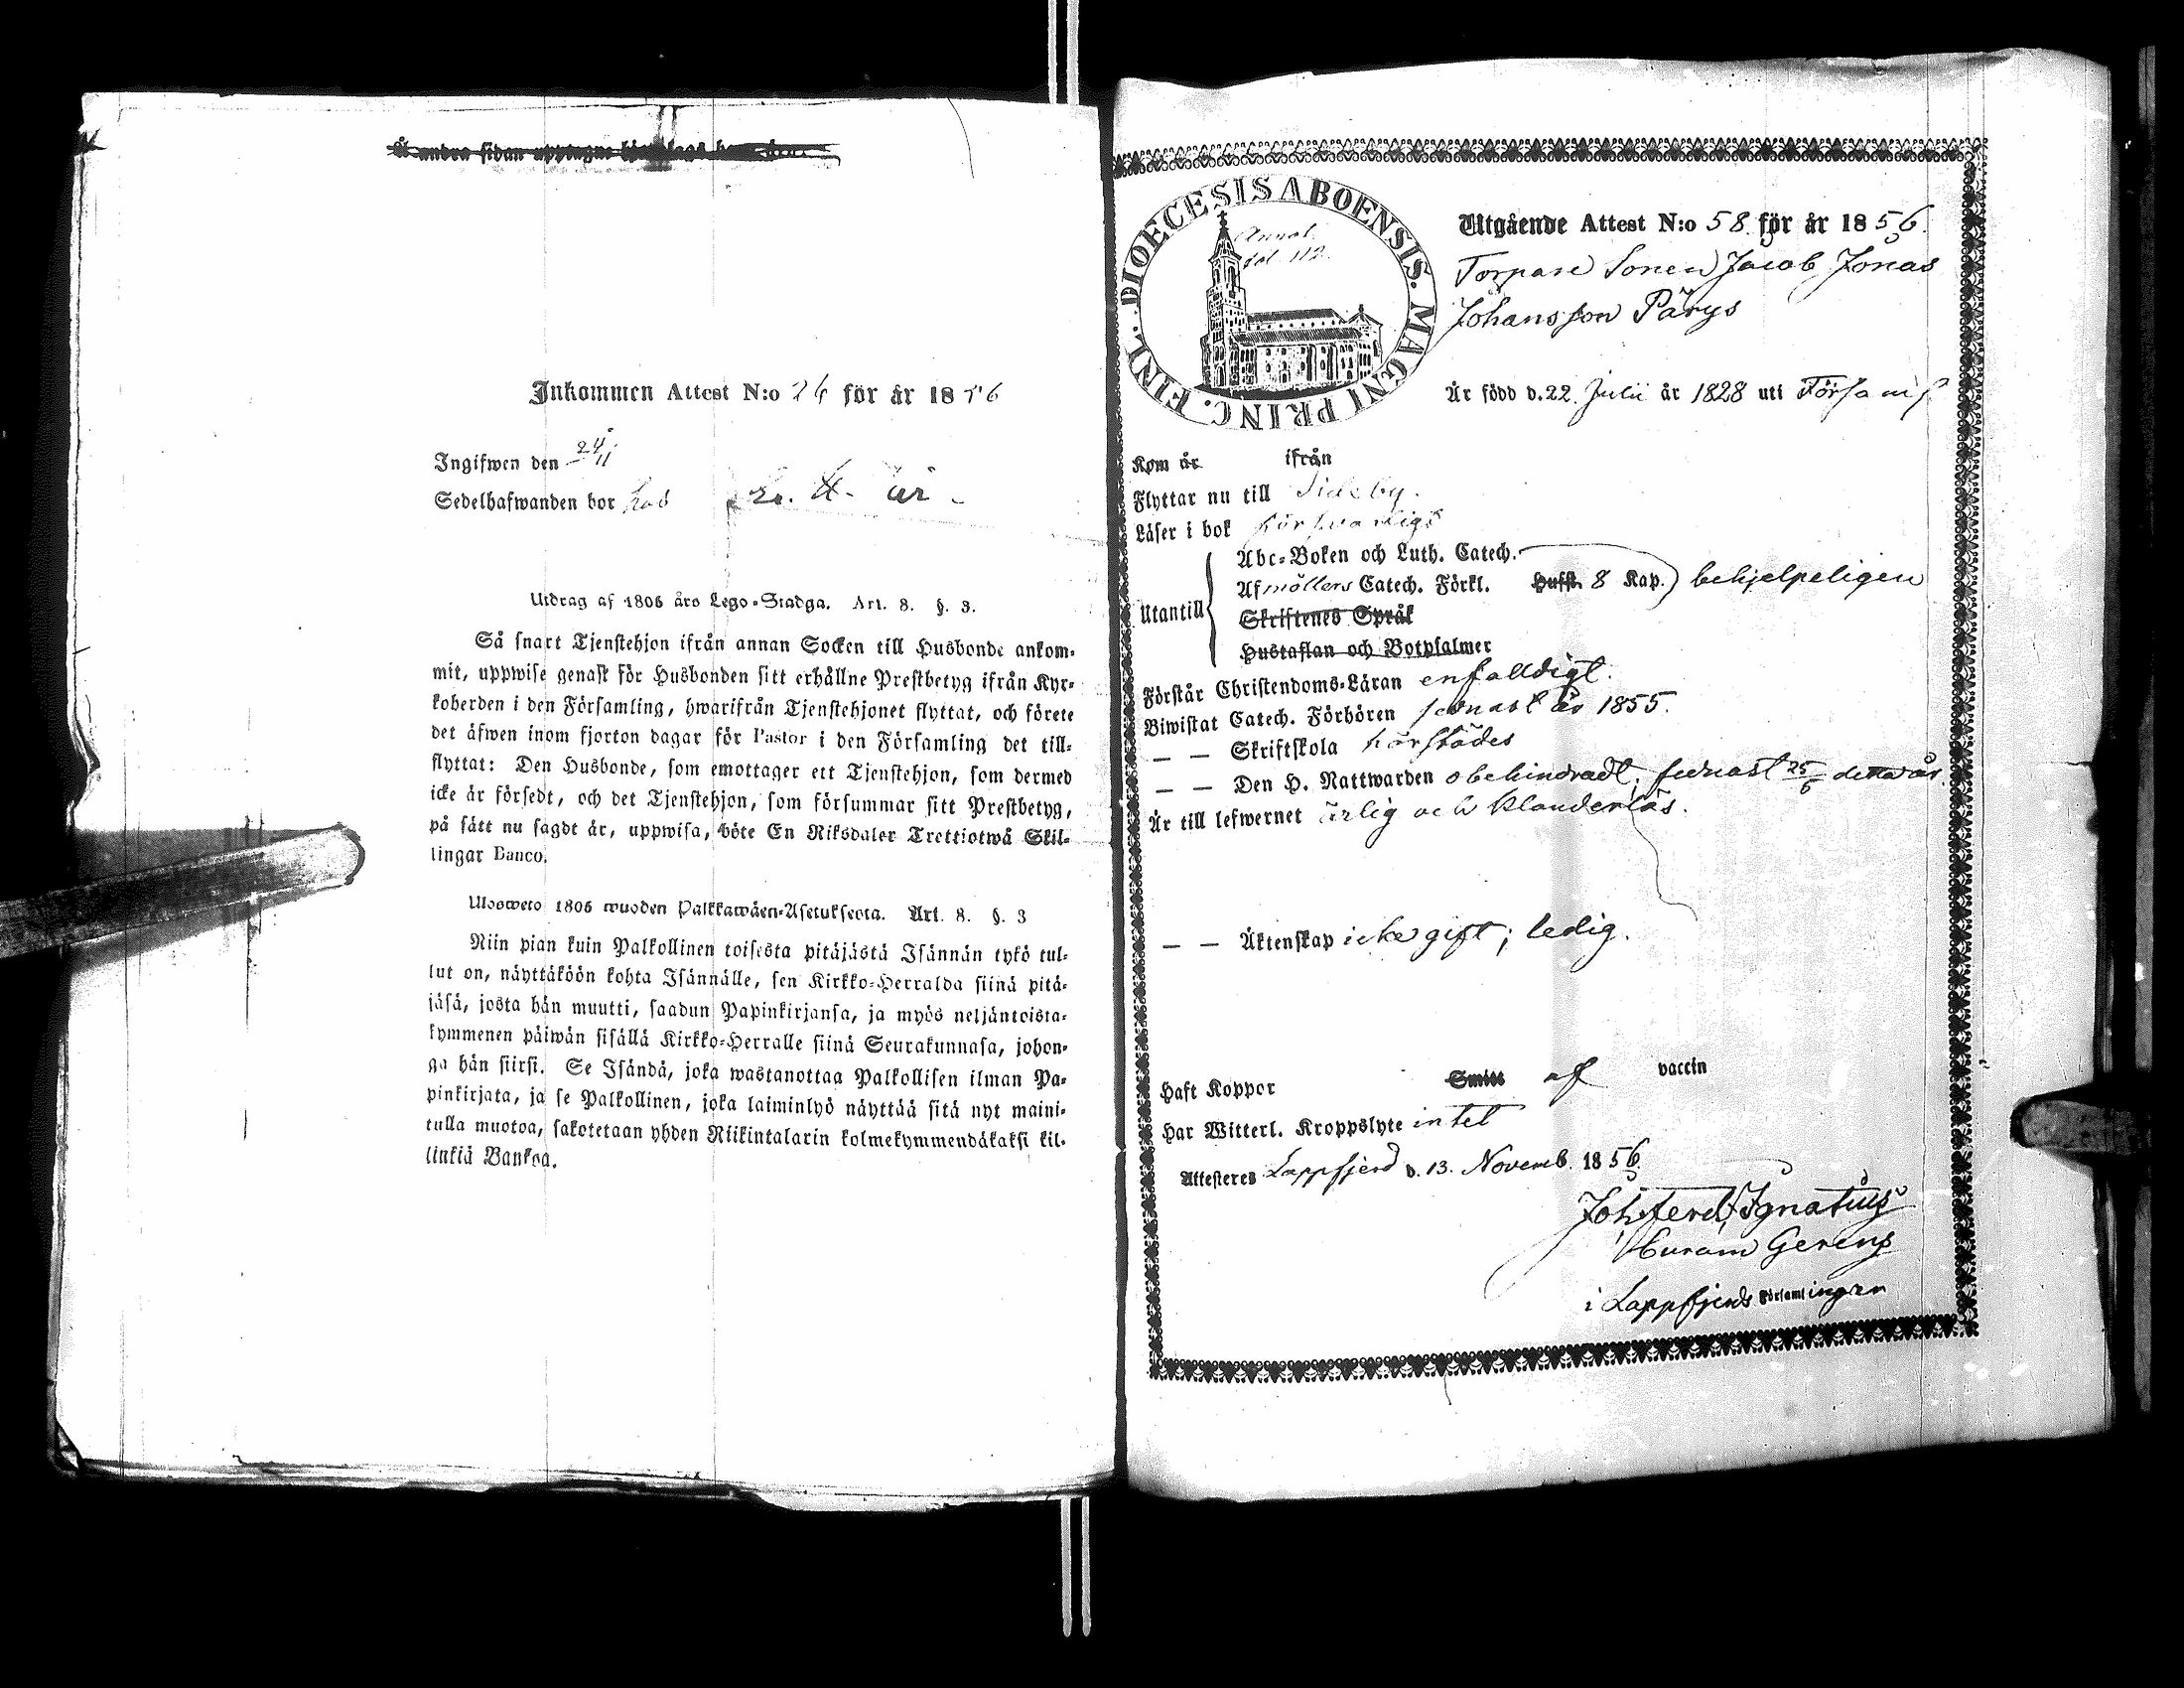 Å andra sidan
Inkommen Attest N:o 26 för år 1856
Ingifwen den 24/11
Sedelhafwanden bor hos
Utdrag af 1805 års Lego-Stadga. Art. 8. §. 3.
Så snart Tjenstehjon ifrån annan Socken till Husbonde ankom-
mit, uppwise genast för Husbonden sitt erhållne Prestbetyg ifrån Kyr-
koherden i den Församling, hwarifrån Tjenstehjonet flyttat, och förete
det äfwen inom fjorton dagar för Pastor i den Församling det till-
flyttat: Den Husbonde, som emottager ett Tjenstehjon, som dermed
icke är försedt, och det Tjenstehjon, som försummar sitt Prestbetyg,
på sätt nu sagdt är, uppwisa, böte En Riksdaler Trettiotwå Skil-
lingar Banco.
Ulosweto 1805 wuoden Palkkawäen-Asetuksesta. Art. 8. §. 3
Niin pian kuin Palkollinen toisesta pitäjästä Isännän tykö tul-
lut on, näyttäköön kohta Isännälle, sen Kirkko-Herralda siinä pitä-
jäsä, josta hän muutti, saadun Papinkirjansa, ja myös neljäntoista-
kymmenen päiwän sisällä Kirkko-Herralle siinä Seurakunnasa, johon-
ga hän siirsi. Se Isändä, joka wastanottaa Palkollisen ilman Pa-
pinkirjata, ja se Palkollinen, joka laiminlyö näyttää sitä nyt maini-
tulla muotoa, sakotetaan yhden Riikintalarin kolmekymmendäkaksi kil-
linkiä Bankoa.
DIOECESIS ABOENSIS. MAGNI PRINC. FINL.
Annot.
fol. 112.
Utgående Attest N:o 58 för år 1856.
Torpare Sonen Jacob Jonas
Johansson Pärys
Är född d. 22. Julii år 1828 uti Församl
Kom år ifrån
Flyttar nu till Sideby.
Läser i bok försvarligt
Abc-Boken och Luth. Catech.
Utantill Af möllers Catech. Förkl. Husst. 8 Kap. behjelpeligen
Skriftenes Språk
Hustaflan och Botpsalmer
Förstår Christendoms-Läran enfalldigt.
Biwistat Catech. Förhören sednast år 1855.
— — Skriftskola härstädes
— — Den H. Nattwarden obehindradt, sednast 25/5 detta år.
Är till lefwernet ärlig och klanderlös.
— — Äktenskap icke gift; ledig.
Haft Koppor Smitt af vaccin
Har Witterl. Kroppslyte intet
Attesteres Lappfjerd d. 13. Novemb. 1856.
Joh. Ferd. Ignatius
Curam Gerens
i Lappfjerds Församlingen